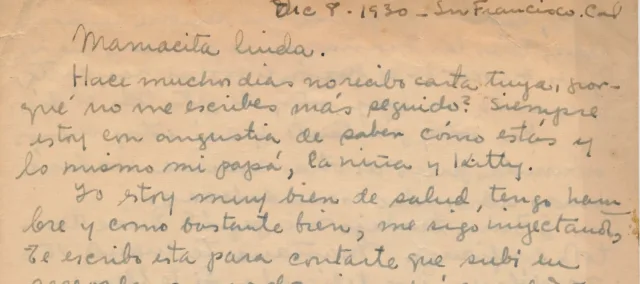 Dic 8 - 1930 - Sn Francisco. Cal
Mamacita linda.
Hace muchos dias no recibo carta tuya, por-
qué no me escribes más seguido? Siempre
estoy con angustia de saber cómo estás y
lo mismo mi papá, la niña y Kitty.
Yo estoy muy bien de salud, tengo ham
bre y como bastante bien, me sigo inyectando,
Te escribo esta para contarte que subi en